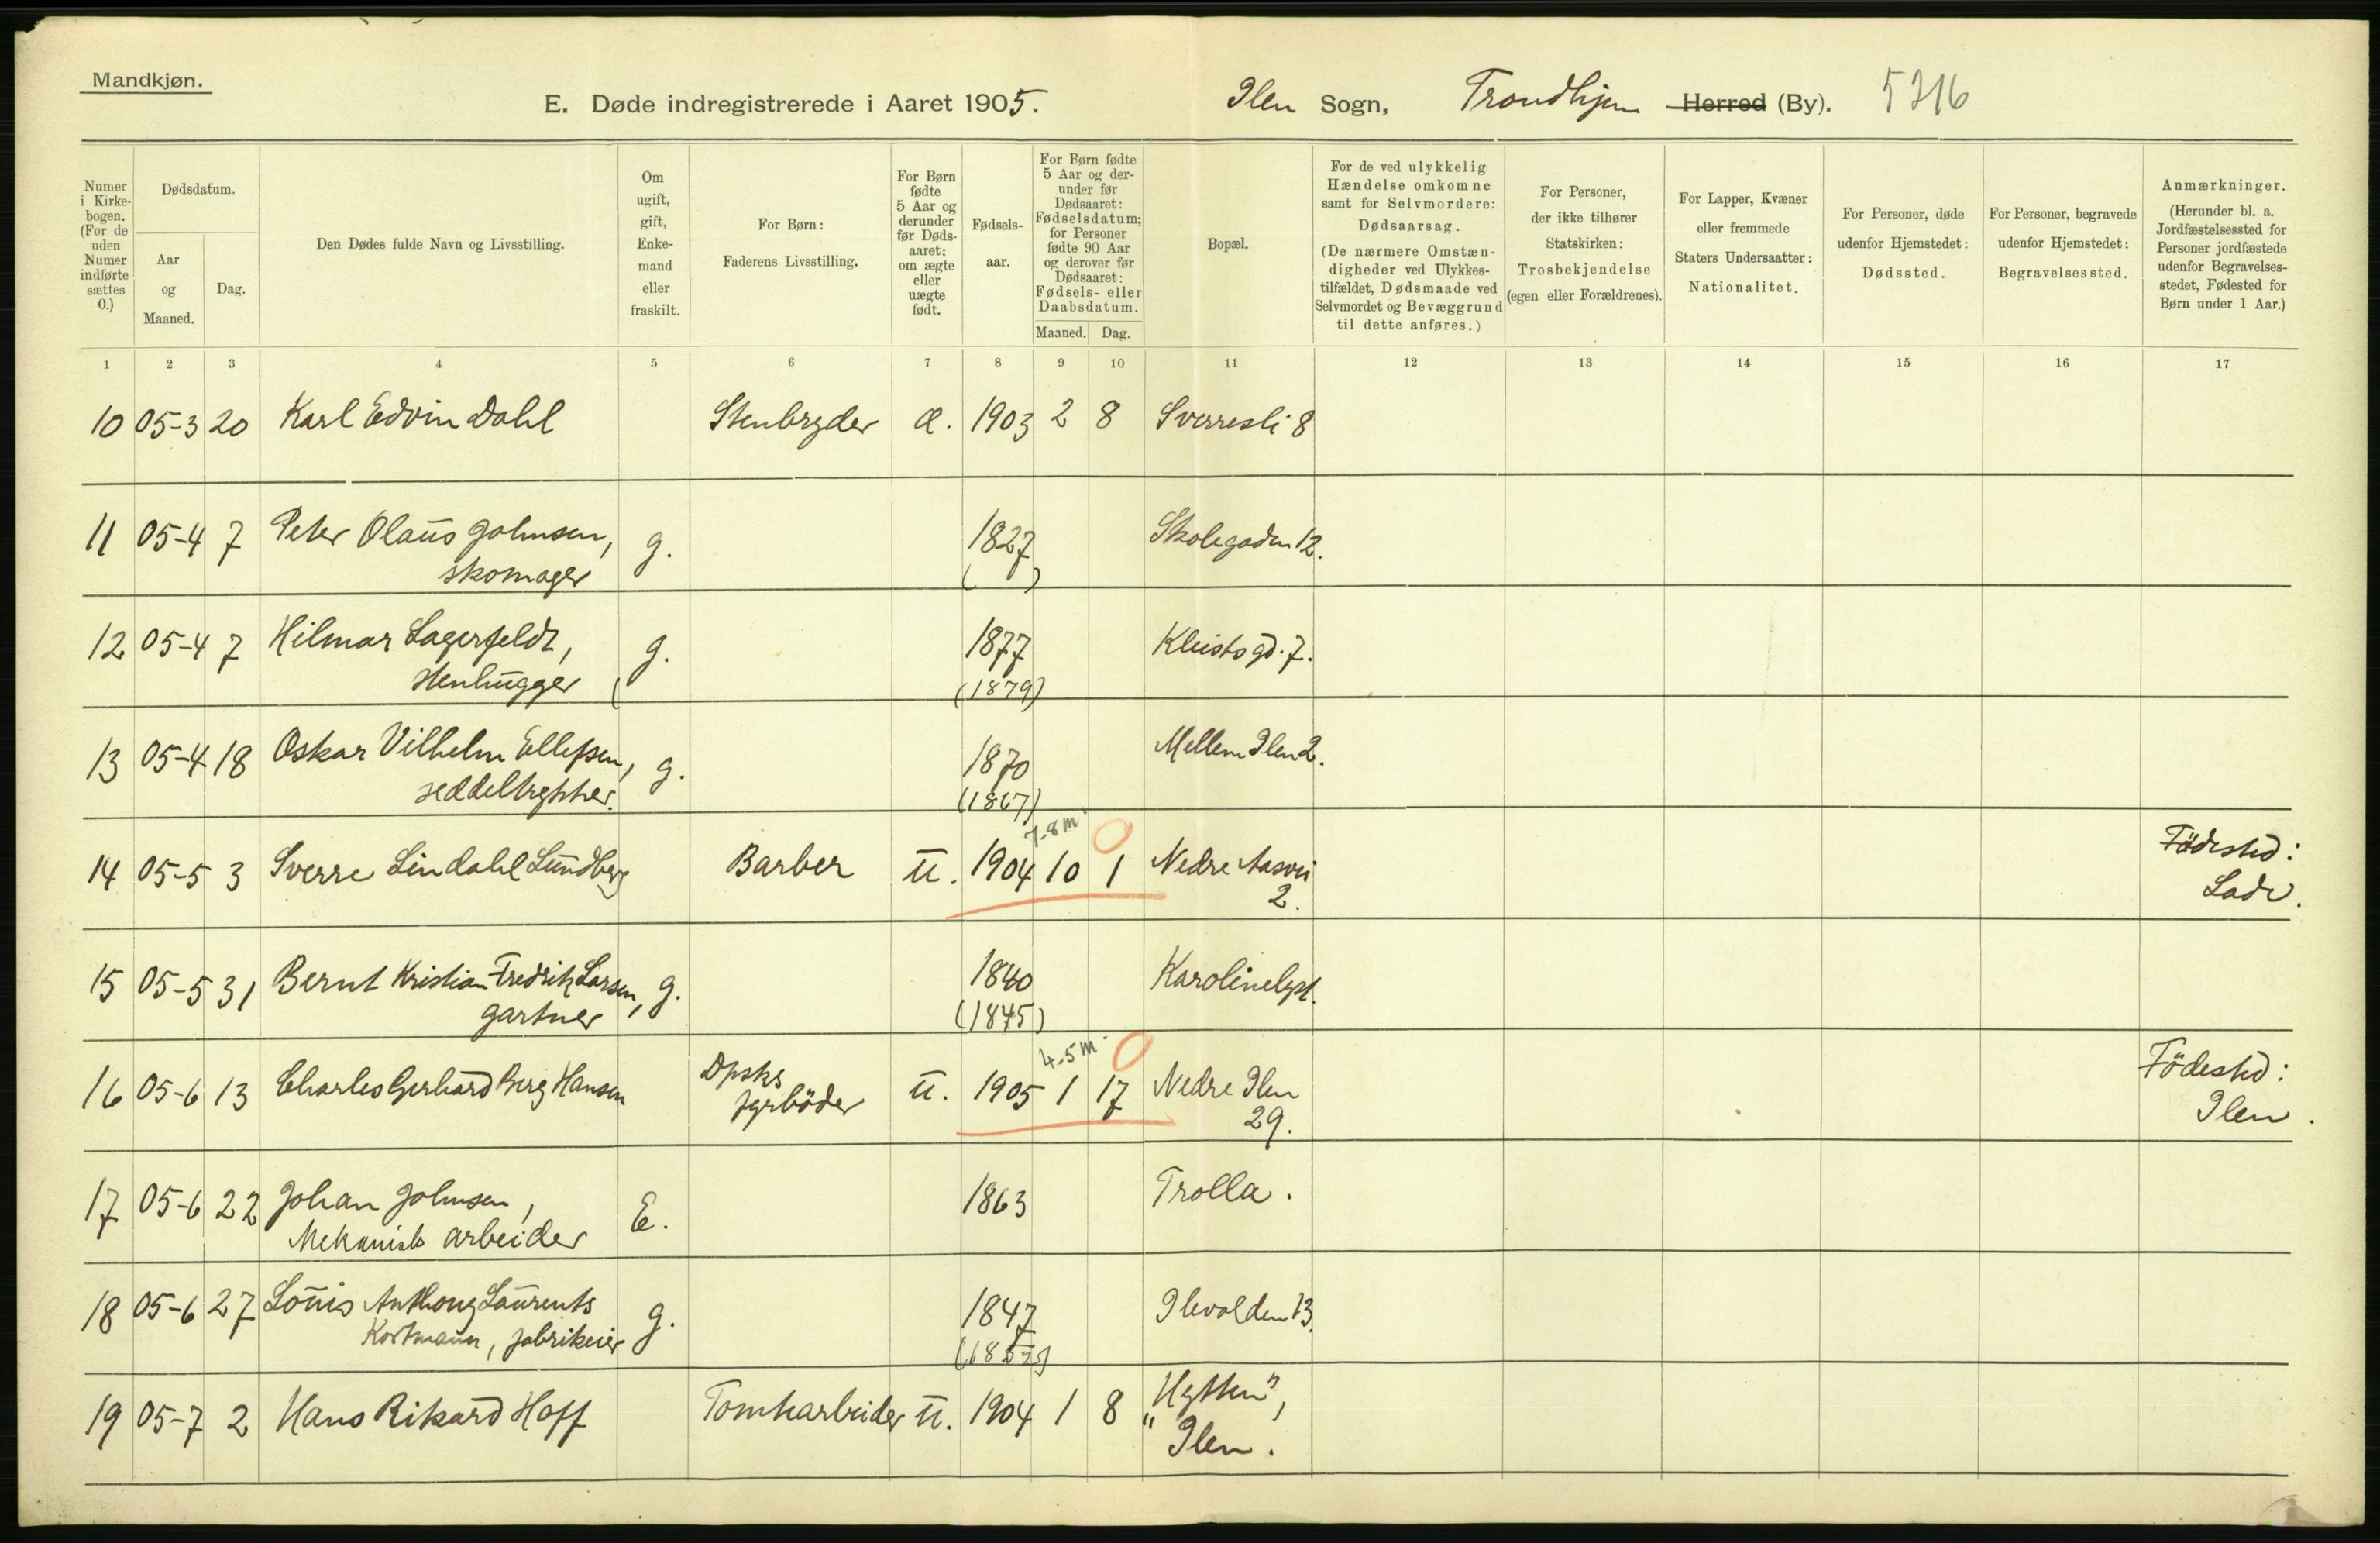 Mandkjøn.
E. Døde indregistrerede i Aaret 1905. Ilen Sogn, Trondhjem Herred (By). 5216
Numer i Kirke-bogen. (For de uden Numer indførte sættes 0.)
Dødsdatum.
Aar og Maaned.
Dag.
Den Dødes fulde Navn og Livsstilling.
Om ugift, gift, Enke-mand eller fraskilt.
For Børn: Faderens Livsstilling.
For Børn fødte 5 Aar og derunder før Døds-aaret: om ægte eller uægte født.
Fødsels-aar.
For Børn fødte 5 Aar og der-under før Dødsaaret: Fødselsdatum; for Personer fødte 90 Aar og derover før Dødsaaret: Fødsels- eller Daabsdatum.
Maaned. Dag.
Bopæl.
For de ved ulykkelig Hændelse omkomne samt for Selvmordere: Dødsaarsag. (De nærmere Omstæn-digheder ved Ulykkes-tilfældet, Dødsmaade ved Selvmordet og Bevæggrund til dette anføres.)
For Personer, der ikke tilhører Statskirken: Trosbekjendelse (egen eller Forældrenes).
For Lapper, Kvæner eller fremmede Staters Undersaatter: Nationalitet.
For Personer, døde udenfor Hjemstedet: Dødssted.
For Personer, begravede udenfor Hjemstedet: Begravelsessted.
Anmærkninger. (Herunder bl. a. Jordfæstelsessted for Personer jordfæstede udenfor Begravelses-stedet, Fødested for Børn under 1 Aar.)
1 2 3 4 5 6 7 8 9 10 11 12 13 14 15 16 17
10 05-3 20 Karl Edvin Dahl Stenbryder æ. 1903 2 8 Sverresli 8
11 05-4 7 Peter Olaus Johnsen, g. 1827 Skolegaden 12.
skomager ( )
12 05-4 7 Hilmar Lagerfeldt, g. 1877 Kleists gd. 7.
stenhugger (1879)
13 05-4 18 Oskar Vilhelm Ellefsen, g. 1870 Mellem Ilen 2.
seddeltrykker. (1867)
7-8 m. 0
14 05-5 3 Sverre Lindahl Lundberg Barber u. 1904 10 1 Nedre Aasvei Födested:
2. Lade.
15 05-5 31 Bernt Kristian Fredrik Larsen, g. 1840 Karolinelyst.
gartner (1845)
4-5 m. 0
16 05-6 13 Charles Gerhard Berg Hansen Dpsks u. 1905 1 17 Nedre Ilen Födested:
fyrböder 29. Ilen.
17 05-6 22 Johan Johnsen, E. 1863 Trolla.
Mekanisk arbeider
18 05-6 27 Louis Anthony Laurents g. 1847 Ilevolden 13.
Kortmann, fabrikeier
19 05-7 2 Hans Rikard Hoff Tomtearbeider u. 1904 1 8 "Hytten",
Ilen.